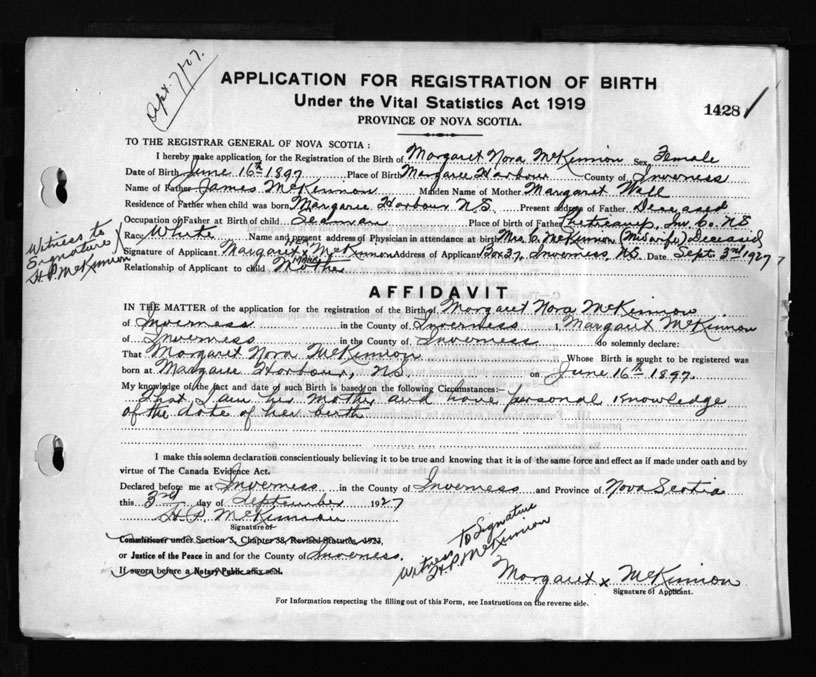 Sept. 7/27.
APPLICATION FOR REGISTRATION OF BIRTH
Under the Vital Statistics Act 1919
PROVINCE OF NOVA SCOTIA.
1428
TO THE REGISTRAR GENERAL OF NOVA SCOTIA:
I hereby make application for the Registration of the Birth of Margaret Nora McKinnon Sex Female
Date of Birth June 16th 1897 Place of Birth Margaree Harbour County of Inverness
Name of Father James McKinnon Maiden Name of Mother Margaret Wall
Residence of Father when child was born Margaree Harbour N.S. Present address of Father Deceased
Occupation of Father at Birth of child Seaman Place of birth of Father Chetecamp, Inv. Co. N.S.
Race White Name and present address of Physician in attendance at birth Mrs. C. McKinnon (Midwife) Deceased
Signature of Applicant Margaret x McKinnon Address of Applicant Box 37, Inverness N.S. Date Sept. 3rd 1927
Relationship of Applicant to child Mother
Witness to
Signature
H.P. McKinnon
AFFIDAVIT
IN THE MATTER of the application for the registration of the Birth of Margaret Nora McKinnon
of Inverness in the County of Inverness I, Margaret McKinnon
of Inverness in the County of Inverness do solemnly declare:
That Margaret Nora McKinnon Whose Birth is sought to be registered was
born at Margaree Harbour, N.S. on June 16th 1897.
My knowledge of the fact and date of such Birth is based on the following Circumstances:—
That I am her Mother and have personal knowledge
of the date of her birth
I make this solemn declaration conscientiously believing it to be true and knowing that it is of the same force and effect as if made under oath and by
virtue of The Canada Evidence Act.
Declared before me at Inverness in the County of Inverness and Province of Nova Scotia
this 3rd day of September 1927
H.P. McKinnon
Signature of
Commissioner under Section 3, Chapter 38, Revised Statutes, 1923,
or Justice of the Peace in and for the County of Inverness.
If sworn before a Notary Public affix seal.
Witness to Signature
H.P. McKinnon
Margaret x McKinnon
Signature of Applicant.
For Information respecting the filling out of this Form, see Instructions on the reverse side.